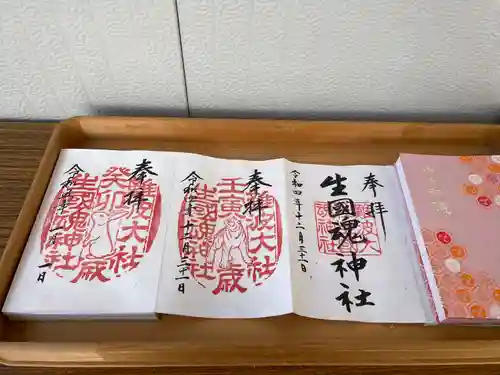 奉拝
生國魂神社
難波大社
令和四年十二月三十一日
奉拝
壬寅歳
難波大社
生國魂神社
令和四年十二月三十一日
奉拝
癸卯歳
難波大社
生國魂神社
一月一日